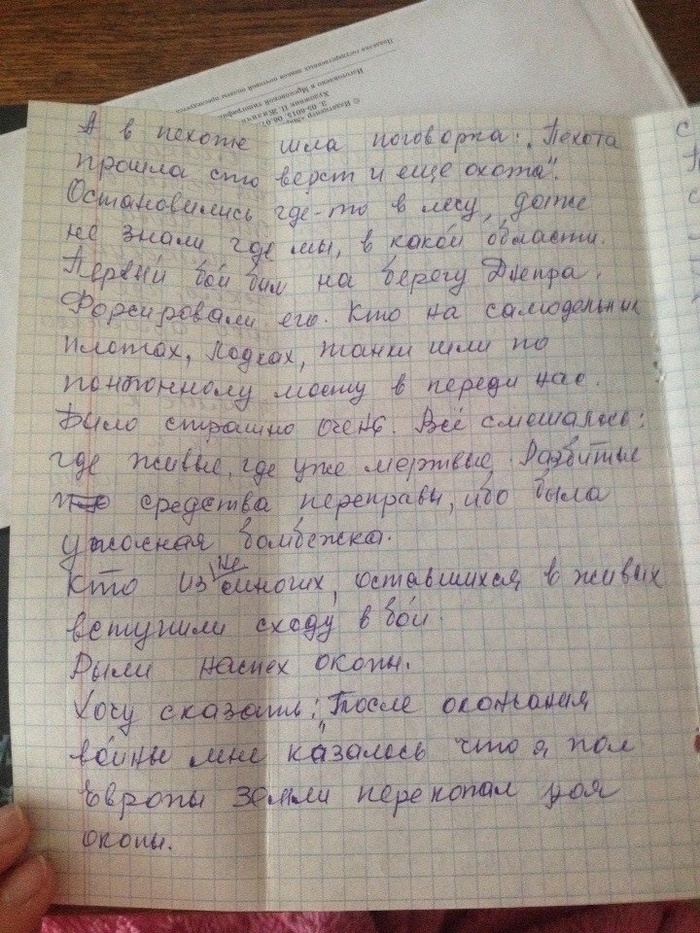 А в пехоте шла поговорка: „Пехота
прошла сто верст и еще охота".
Остановились где-то в лесу, даже
не знали где мы, в какой области.
Первый бой был на берегу Днепра.
Форсировали его. Кто на самодельных
плотах, лодках, танки шли по
понтонному мосту в переди нас.
Было страшно очень. Всё смешалось:
где живые, где уже мертвые. Разбитые
средства переправы, ибо была
ужасная бомбежка.
Кто из не многих, оставшихся в живых
вступили сходу в бой.
Рыли наспех окопы.
Хочу сказать: "После окончания
войны мне казалось что я пол
Европы земли перекопал роя
окопы.
Изготовлено в Московской типографии